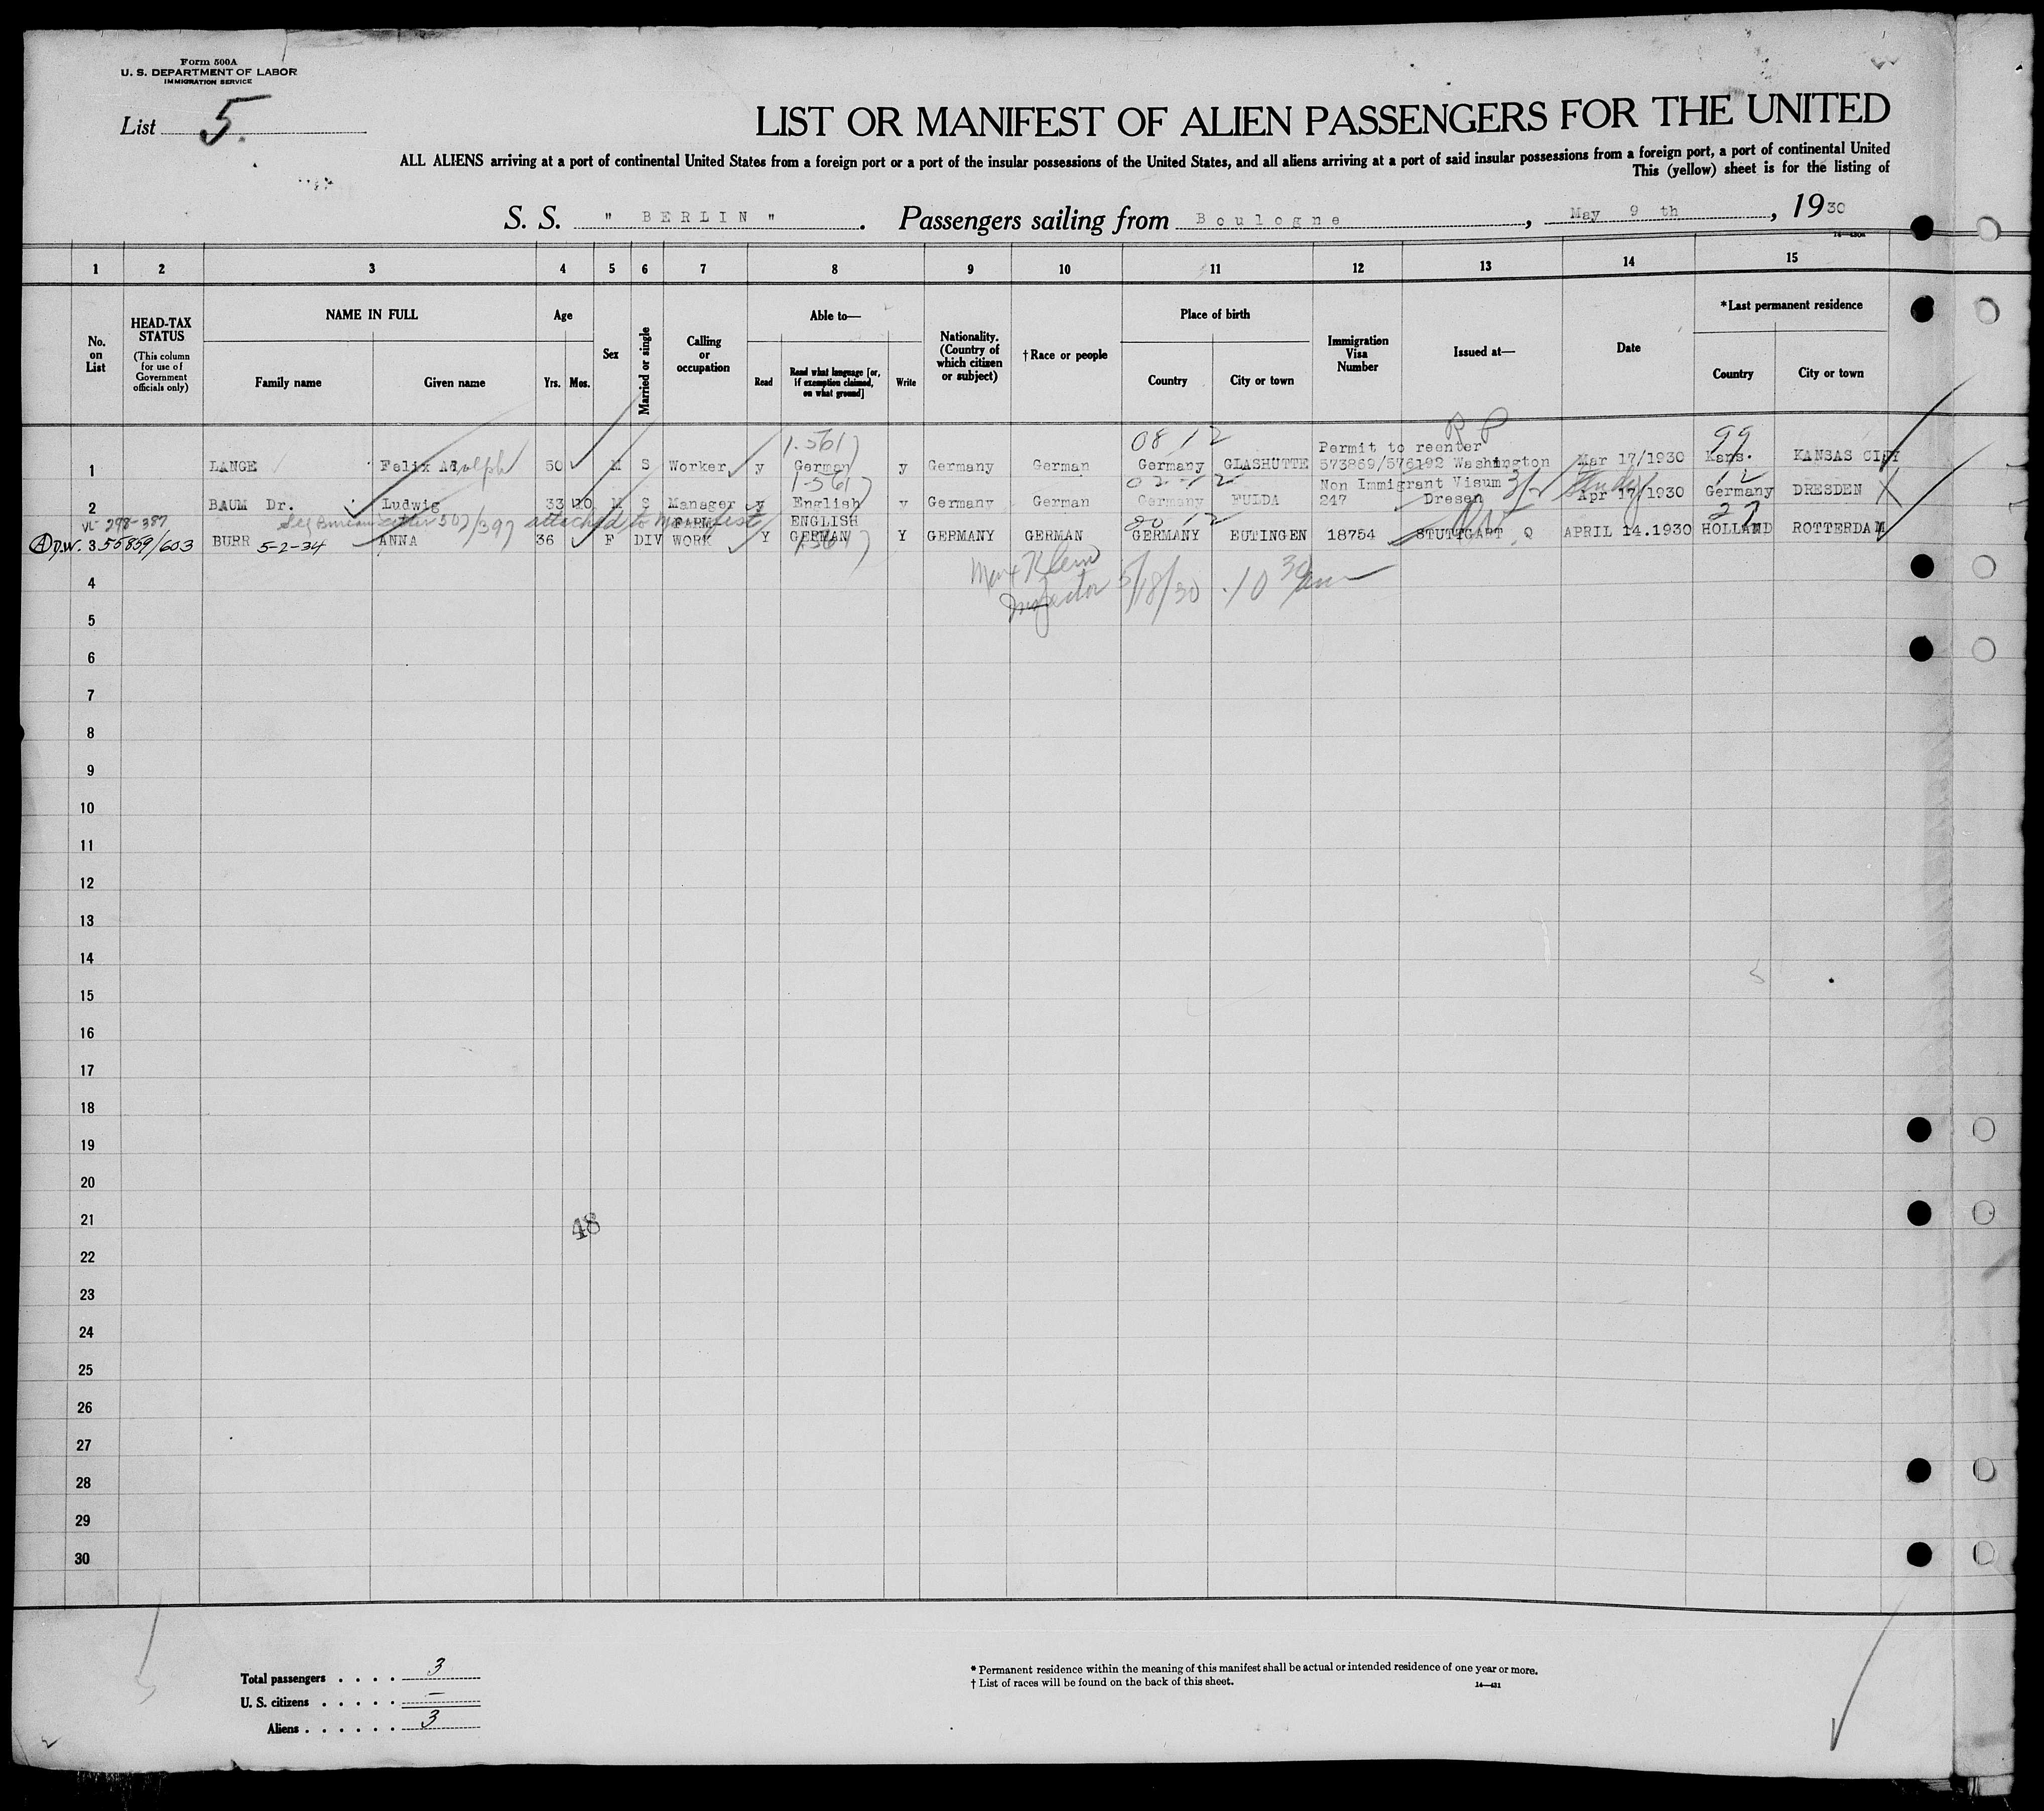 Form 500A
U. S. DEPARTMENT OF LABOR
IMMIGRATION SERVICE
List 5.
LIST OR MANIFEST OF ALIEN PASSENGERS FOR THE UNITED
ALL ALIENS arriving at a port of continental United States from a foreign port or a port of the insular possessions of the United States, and all aliens arriving at a port of said insular possessions from a foreign port, a port of continental United
This (yellow) sheet is for the listing of
S. S. " BERLIN ". Passengers sailing from Boulogne, May 9 th, 1930
1 2 3 4 5 6 7 8 9 10 11 12 13 14 15
No. on List
HEAD-TAX STATUS
(This column for use of Government officials only)
NAME IN FULL
Family name Given name
Age
Yrs. Mos.
Sex
Married or single
Calling or occupation
Able to—
Read
Read what language [or, if exemption claimed, on what ground]
Write
Nationality. (Country of which citizen or subject)
†Race or people
Place of birth
Country City or town
Immigration Visa Number
Issued at—
Date
*Last permanent residence
Country City or town
R P
08 12 99
Permit to reenter
1 LANGE Felix Adolph 50 M S Worker y German y Germany German Germany GLASHUTTE 573869/576192 Washington Mar 17/1930 Kans. KANSAS CITY
02 12 12
Non Immigrant Visum 3/2
2 BAUM Dr. Ludwig 33 10 M S Manager y English y Germany German Germany FULDA 247 Dresen Apr 17/1930 Germany DRESDEN
VL 298-387 See Bureau letter 507/397 attached to Manifest
FARM ENGLISH 80 12 27
A D.W. 3 55859/603 BURR 5-2-34 ANNA 36 F DIV WORK Y GERMAN Y GERMANY GERMAN GERMANY EUTINGEN 18754 STUTTGART Q APRIL 14.1930 HOLLAND ROTTERDAM
4
Inspector 5/18/30 10 30 am
5
6
7
8
9
10
11
12
13
14
15
16
17
18
19
20
21
48
22
23
24
25
26
27
28
29
30
Total passengers . . . . 3
U. S. citizens . . . . . —
Aliens . . . . . . 3
* Permanent residence within the meaning of this manifest shall be actual or intended residence of one year or more.
† List of races will be found on the back of this sheet.
14—431